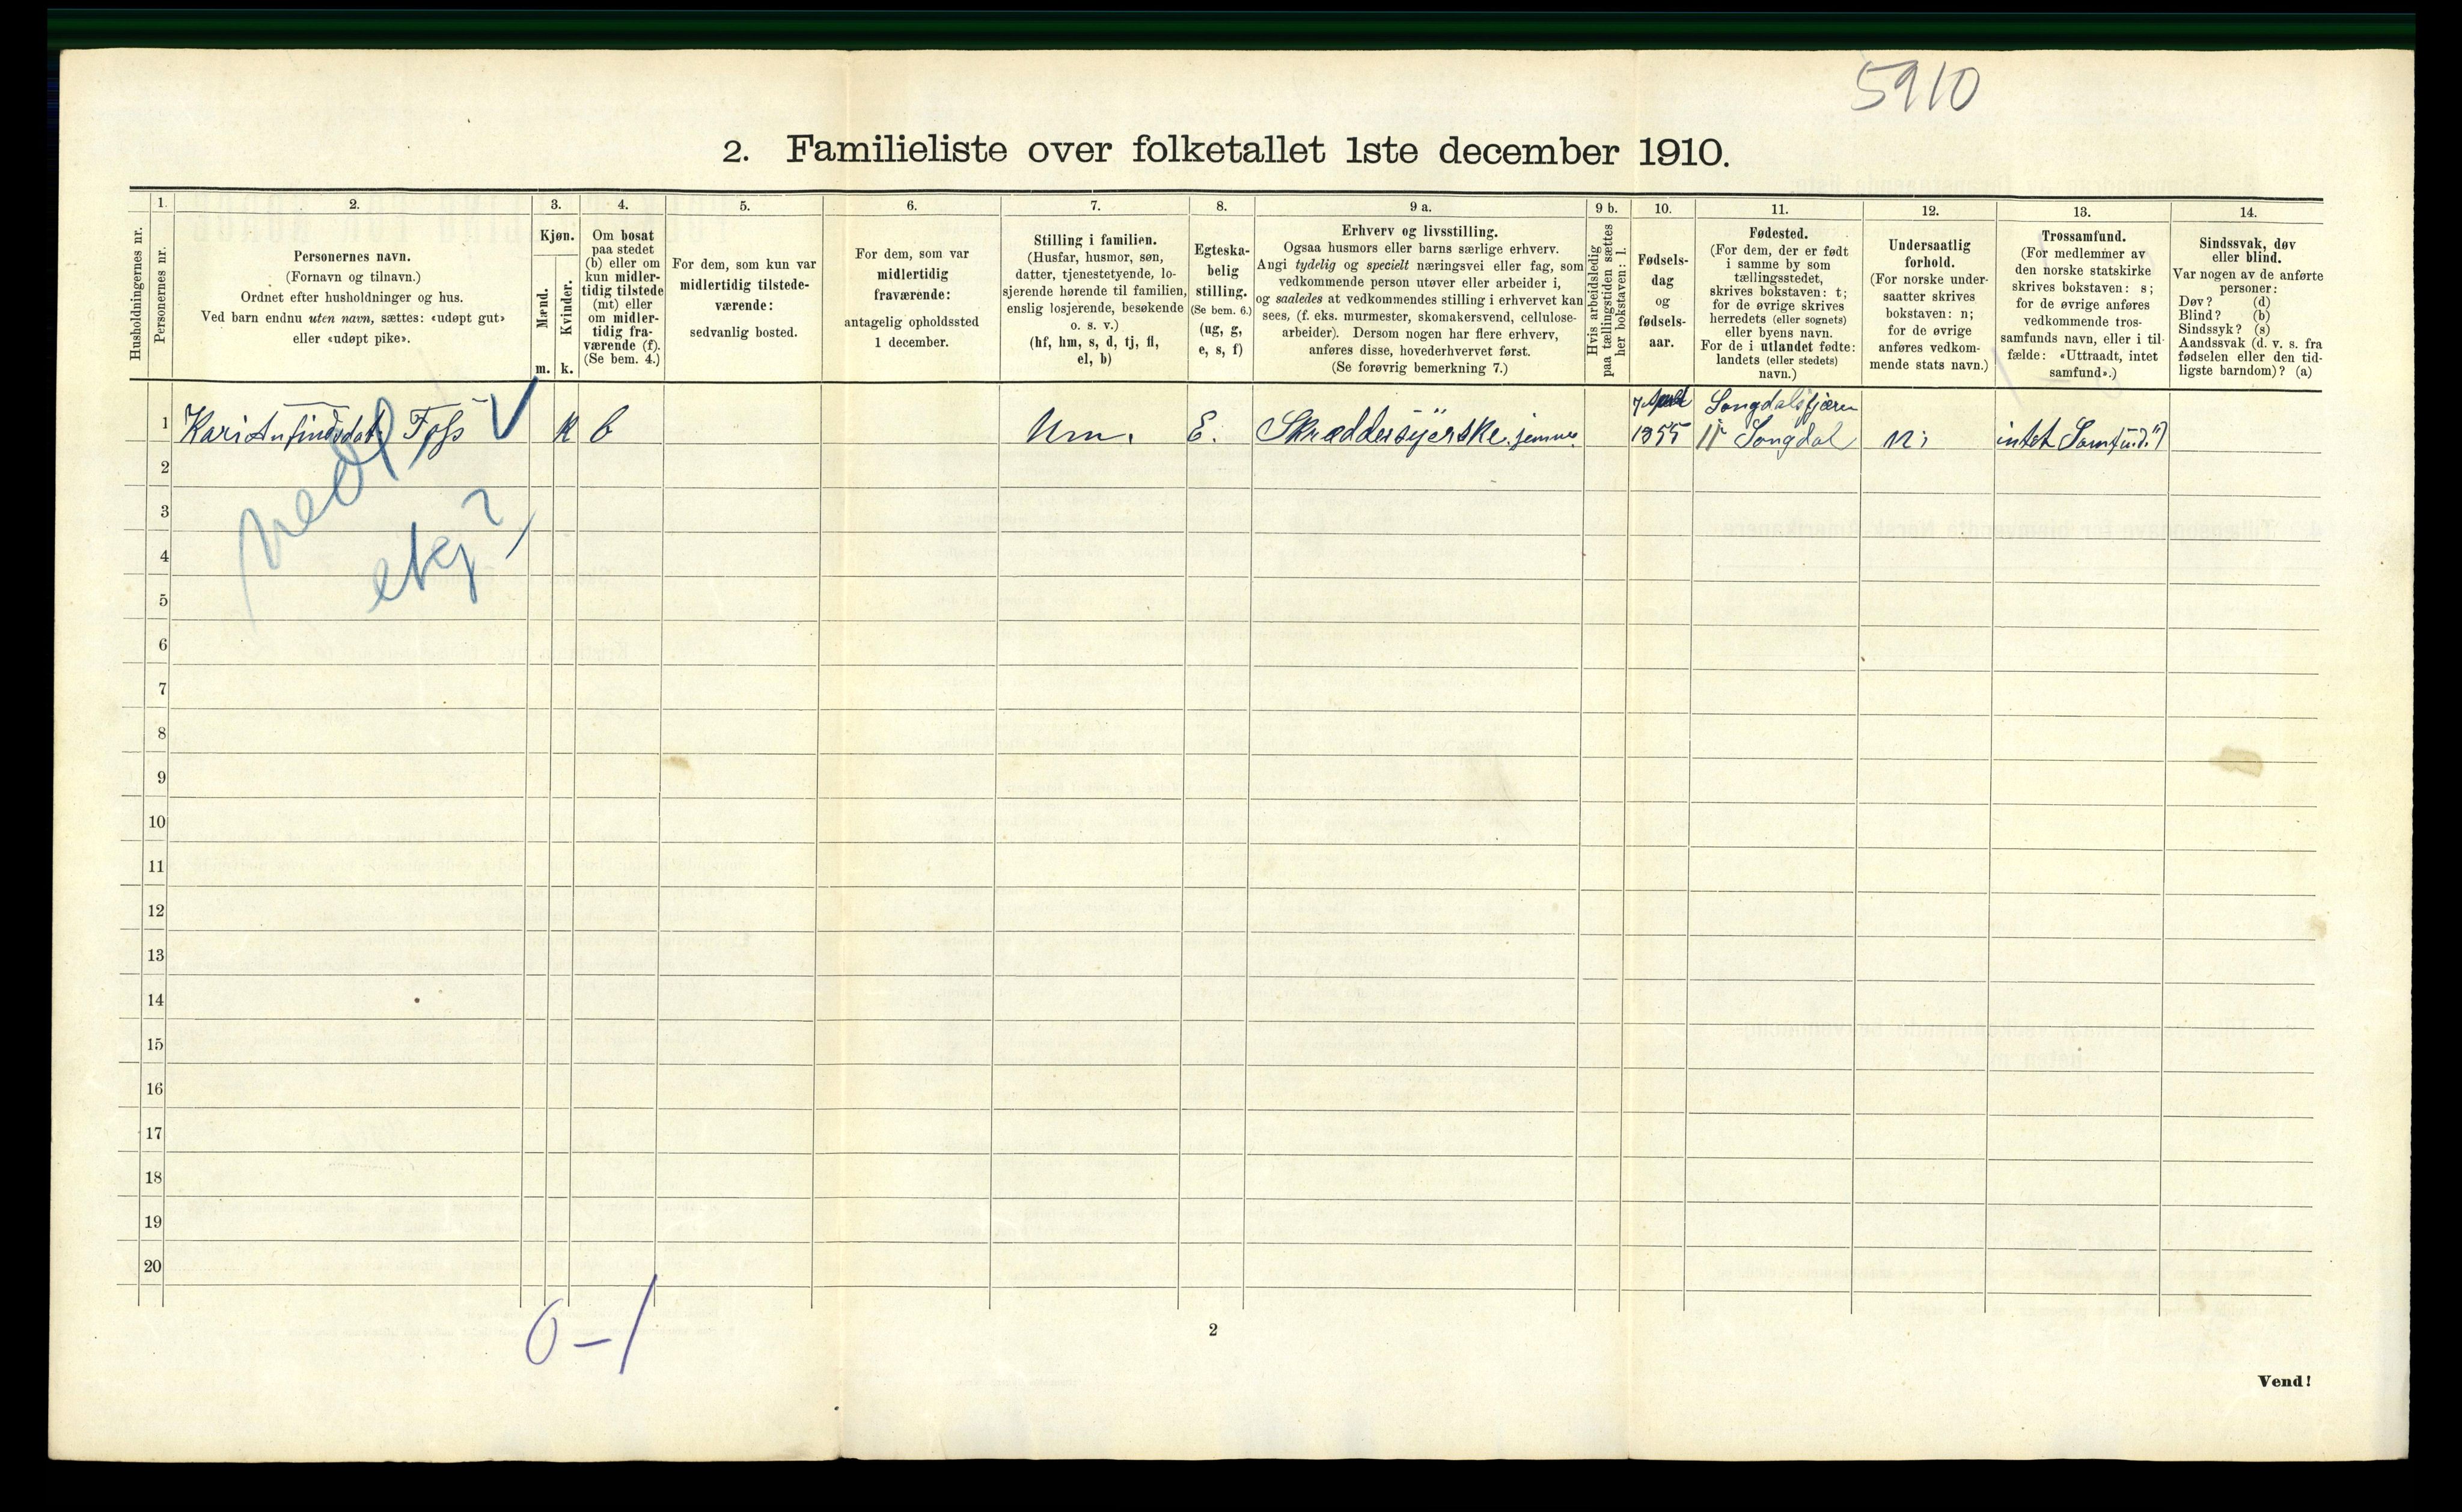 5910
2. Familieliste over folketallet 1ste december 1910.
Husholdningernes nr.
1.
Personernes nr.
2.
Personernes navn.
(Fornavn og tilnavn.)
Ordnet efter husholdninger og hus.
Ved barn endnu uten navn, sættes: «udøpt gut»
eller «udøpt pike».
3.
Kjøn.
Mænd.
Kvinder.
m.
k.
4.
Om bosat
paa stedet
(b) eller om
kun midler-
tidig tilstede
(mt) eller
om midler-
tidig fra-
værende (f).
(Se bem. 4.)
5.
For dem, som kun var
midlertidig tilstede-
værende:
sedvanlig bosted.
6.
For dem, som var
midlertidig
fraværende:
antagelig opholdssted
1 december.
7.
Stilling i familien.
(Husfar, husmor, søn,
datter, tjenestetyende, lo-
sjerende hørende til familien,
enslig losjerende, besøkende
o. s. v.)
(hf, hm, s, d, tj, fl,
el, b)
8.
Egteska-
belig
stilling.
(Se bem. 6.)
(ug, g,
e, s, f)
9 a.
Erhverv og livsstilling.
Ogsaa husmors eller barns særlige erhverv.
Angi tydelig og specielt næringsvei eller fag, som
vedkommende person utøver eller arbeider i,
og saaledes at vedkommendes stilling i erhvervet kan
sees, (f. eks. murmester, skomakersvend, cellulose-
arbeider). Dersom nogen har flere erhverv,
anføres disse, hovederhvervet først.
(Se forøvrig bemerkning 7.)
9 b.
Hvis arbeidsledig
paa tællingstiden sættes
her bokstaven: l.
10.
Fødsels-
dag
og
fødsels-
aar.
11.
Fødested.
(For dem, der er født
i samme by som
tællingsstedet,
skrives bokstaven: t;
for de øvrige skrives
herredets (eller sognets)
eller byens navn.
For de i utlandet fødte:
landets (eller stedets)
navn.)
12.
Undersaatlig
forhold.
(For norske under-
saatter skrives
bokstaven: n;
for de øvrige
anføres vedkom-
mende stats navn.)
13.
Trossamfund.
(For medlemmer av
den norske statskirke
skrives bokstaven: s;
for de øvrige anføres
vedkommende tros-
samfunds navn, eller i til-
fælde: «Uttraadt, intet
samfund».)
14.
Sindssvak, døv
eller blind.
Var nogen av de anførte
personer:
Døv? (d)
Blind? (b)
Sindssyk? (s)
Aandssvak (d. v. s. fra
fødselen eller den tid-
ligste barndom)? (a)
1 Kari Anfindsdat. Foss V k b hm. E. Skræddersyerske. 7 April 1855 Songdal n; intet Samfund.
2
3
4
5
6
7
8
9
10
11
12
13
14
15
16
17
18
19
20
0-1
2
Vend!